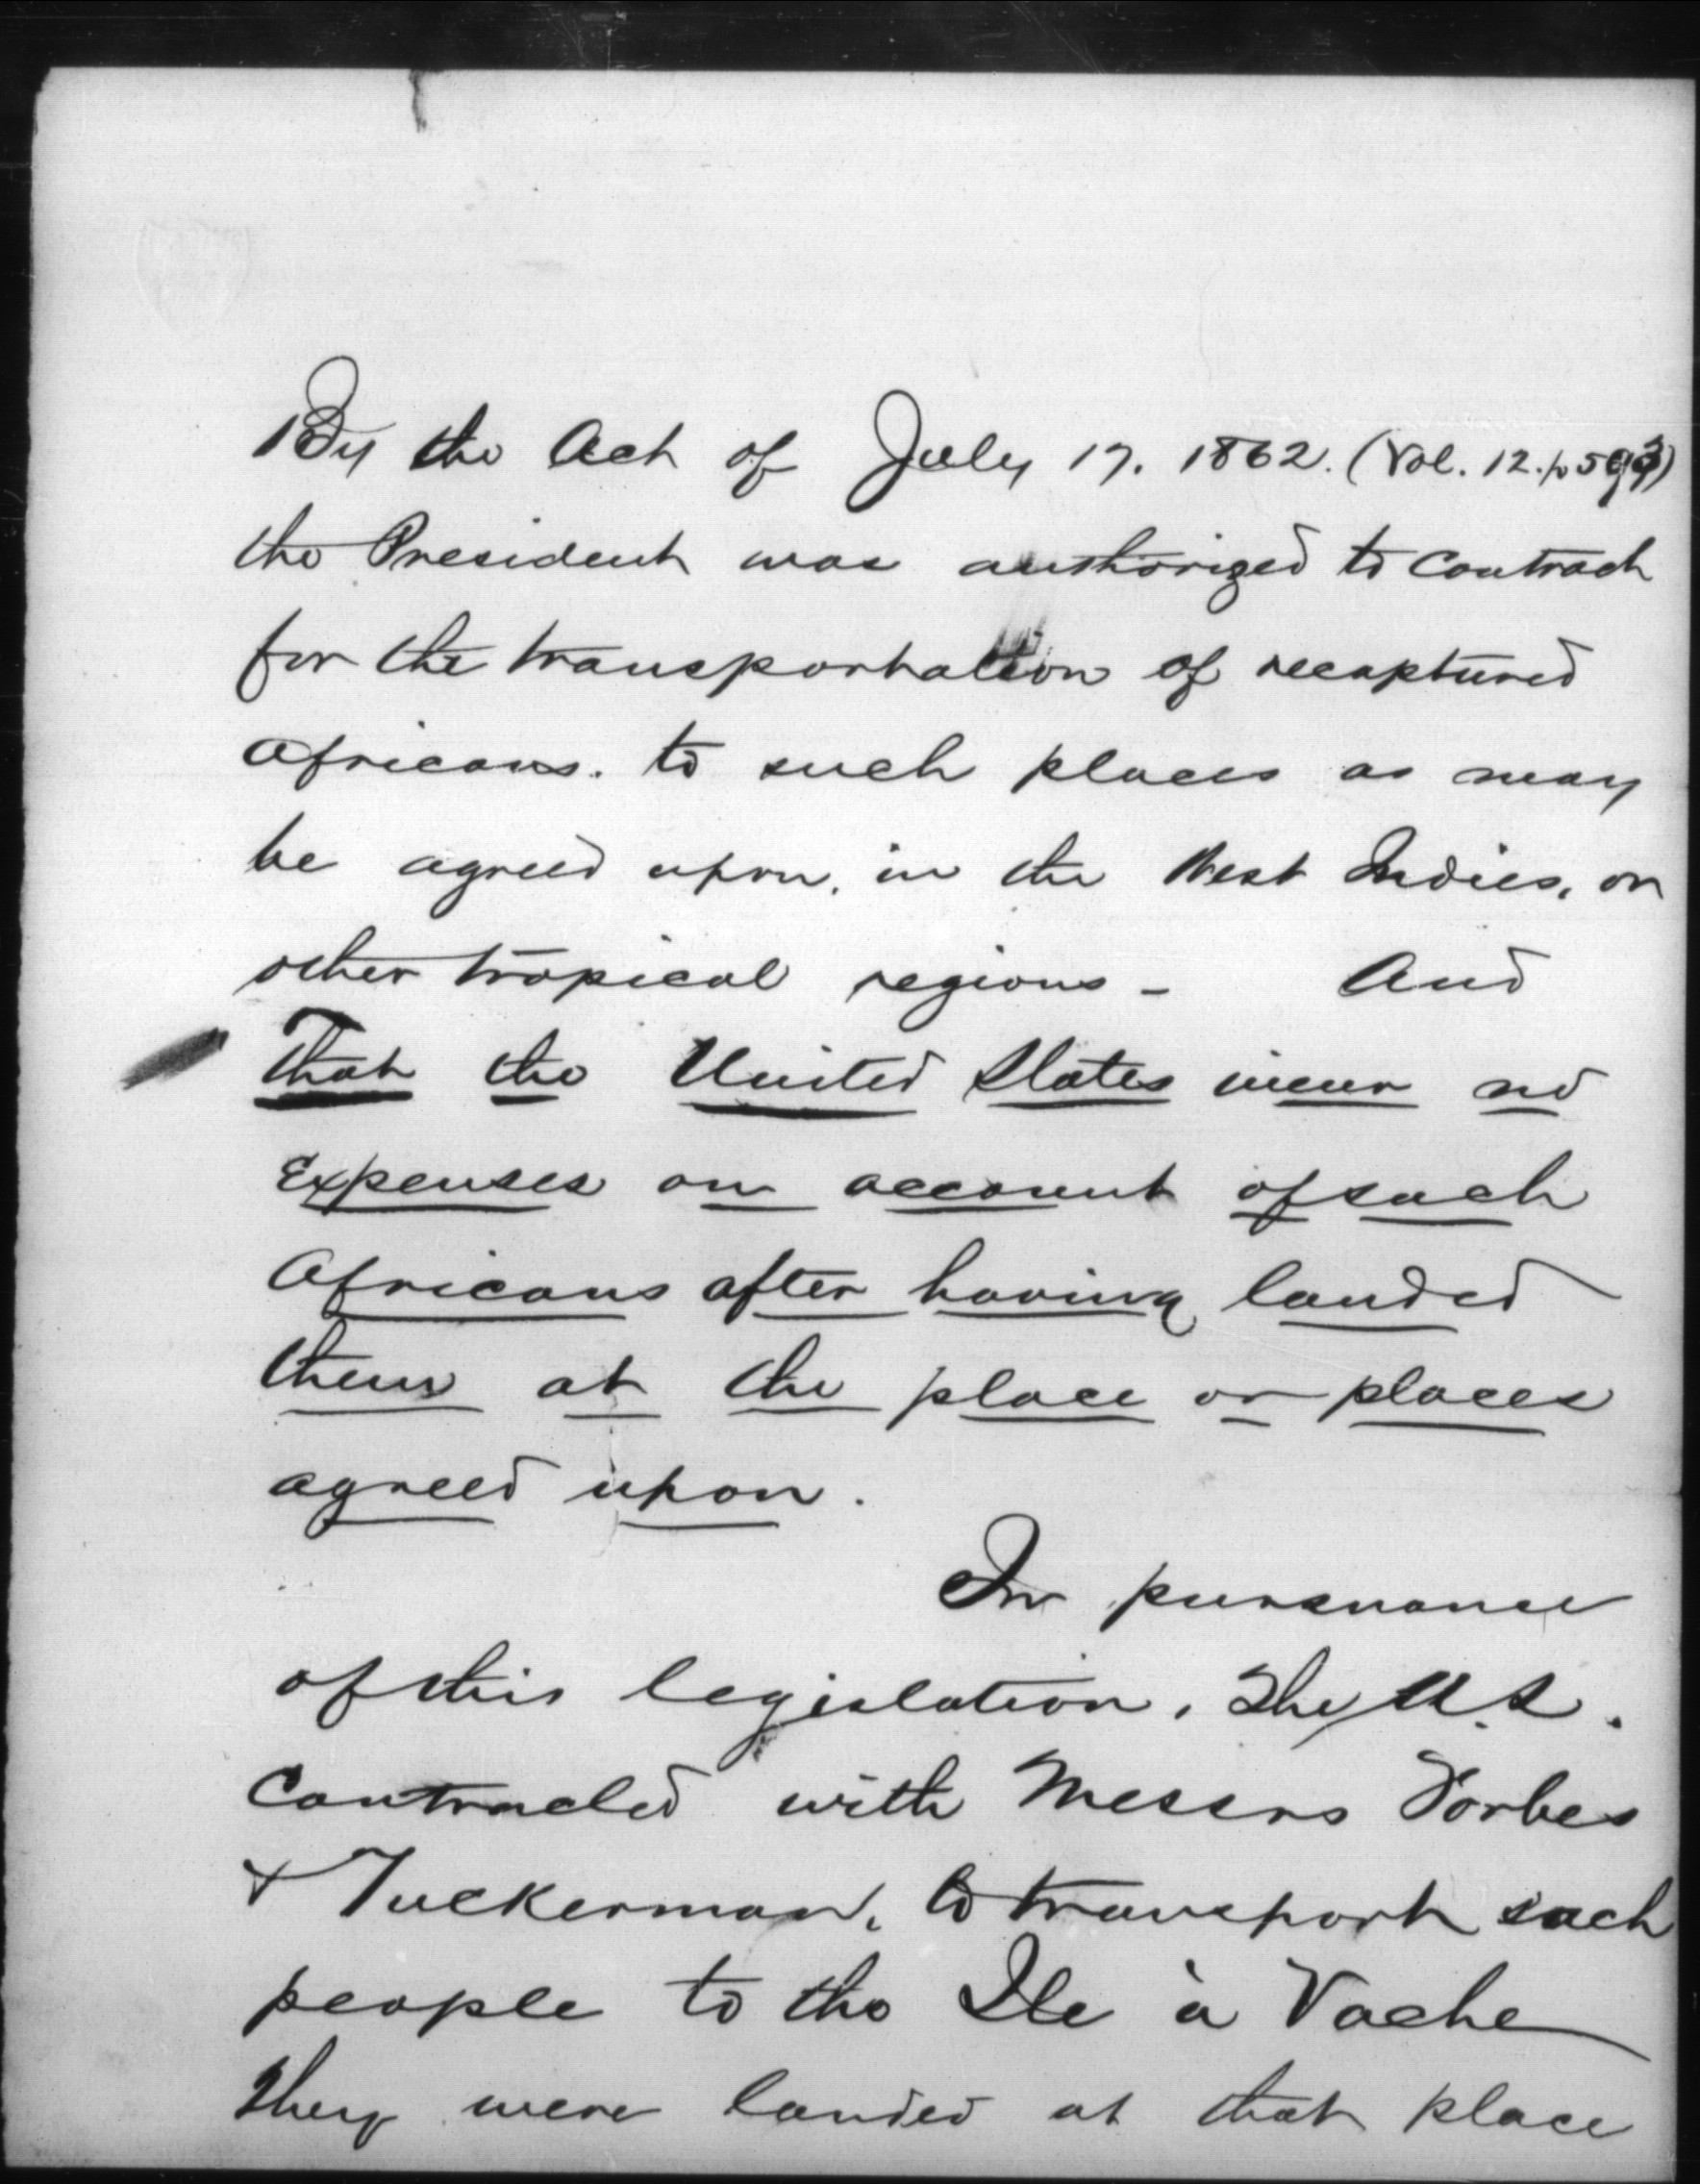 By the Act of July 17. 1862. (Vol. 12. p 593)
the President was authorized to contract
for the transportation of recaptured
Africans. to such places as may
be agreed upon. in the West Indies, or
other tropical regions - And
That the United States incur no
Expenses on account of such
Africans after having landed
them at the place or places
agreed upon.
In pursuance
of this legislation, The U.S.
Contracted with Messrs Forbes
& Tuckerman, to transport such
people to the Ile à Vache
They were landed at that place